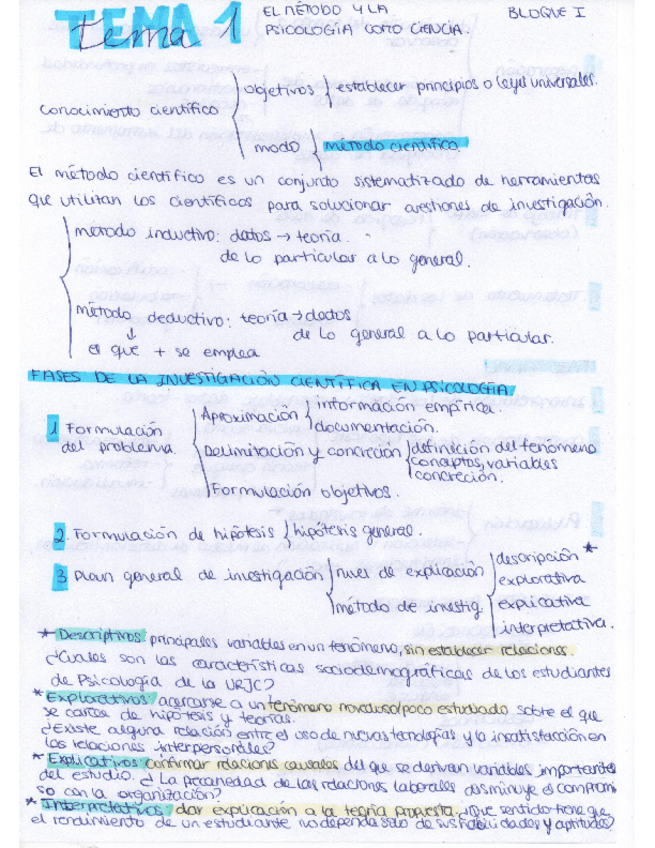 TEMA 1
tema
EL MÉTODO Y LA
PSICOLOGÍA COMO CIENCIA.
BLOQUE I
conocimiento científico
objetivos } establecer principios o leyes universales.
modo } método científico.
El método científico es un conjunto sistematizado de herramientas
que utilizan los científicos para solucionar cuestiones de investigación.
método inductivo: datos → teoría.
de lo particular a lo general.
método deductivo: teoría → datos
de lo general a lo particular.
↓
el que + se emplea
FASES DE LA INVESTIGACIÓN CIENTÍFICA EN PSICOLOGÍA
1 Formulación
del problema.
Aproximación
información empírica.
documentación.
Delimitación y concreción
definición del fenómeno
conceptos, variables
concreción.
Formulación objetivos.
2. Formulación de hipótesis { hipótesis general.
3 Plan general de investigación
nivel de explicación
descripción *
explorativa
explicativa
interpretativa.
método de investig.
* Descriptivos principales variables en un fenómeno, sin establecer relaciones.
¿Cuales son las características sociodemográficas de los estudiantes
de Psicología de la URJC?
* Explorativos acercarse a un fenómeno novedoso/poco estudiado sobre el que
se carece de hipótesis y teorías.
¿Existe alguna relación entre el uso de nuevas tecnologías y la insatisfacción en
las relaciones interpersonales?
* Explicativos confirmar relaciones causales del que se derivan variables importantes
del estudio. ¿La precariedad de las relaciones laborales disminuye el compromi
so con la organización?
* Interpretativos dar explicación a la teoría propuesta ¿Que sentido tiene que
el rendimiento de un estudiante no dependa solo de sus habilidades y aptitudes?